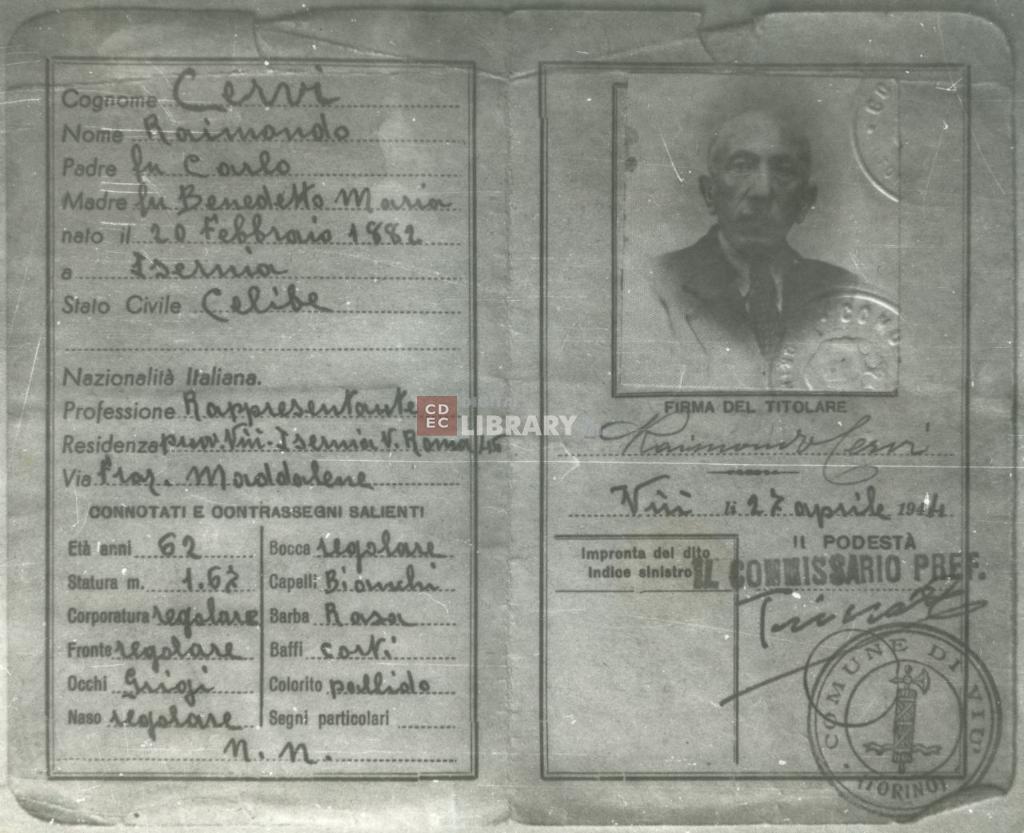 Cognome Cervi
Nome Raimondo
Padre fu Carlo
Madre fu Benedetto Maria
nato il 20 Febbraio 1882
a Isernia
Stato Civile Celibe
Nazionalità Italiana.
Professione Rappresentante
Residenza prov. Viù - Isernia V. Roma
Via Fraz. Maddalene
CONNOTATI E CONTRASSEGNI SALIENTI
Età anni 62
Statura m. 1.67
Corporatura regolare
Fronte regolare
Occhi Grigi
Naso regolare
Bocca regolare
Capelli Bianchi
Barba Rasa
Baffi corti
Colorito pallido
Segni particolari
n. n.
CDEC
LIBRARY
FIRMA DEL TITOLARE
Raimondo Cervi
Viù li 27 aprile 1944
Il PODESTÀ
IL COMMISSARIO PREF.
Impronta del dito
Indice sinistro
COMUNE DI VIÙ
(TORINO)